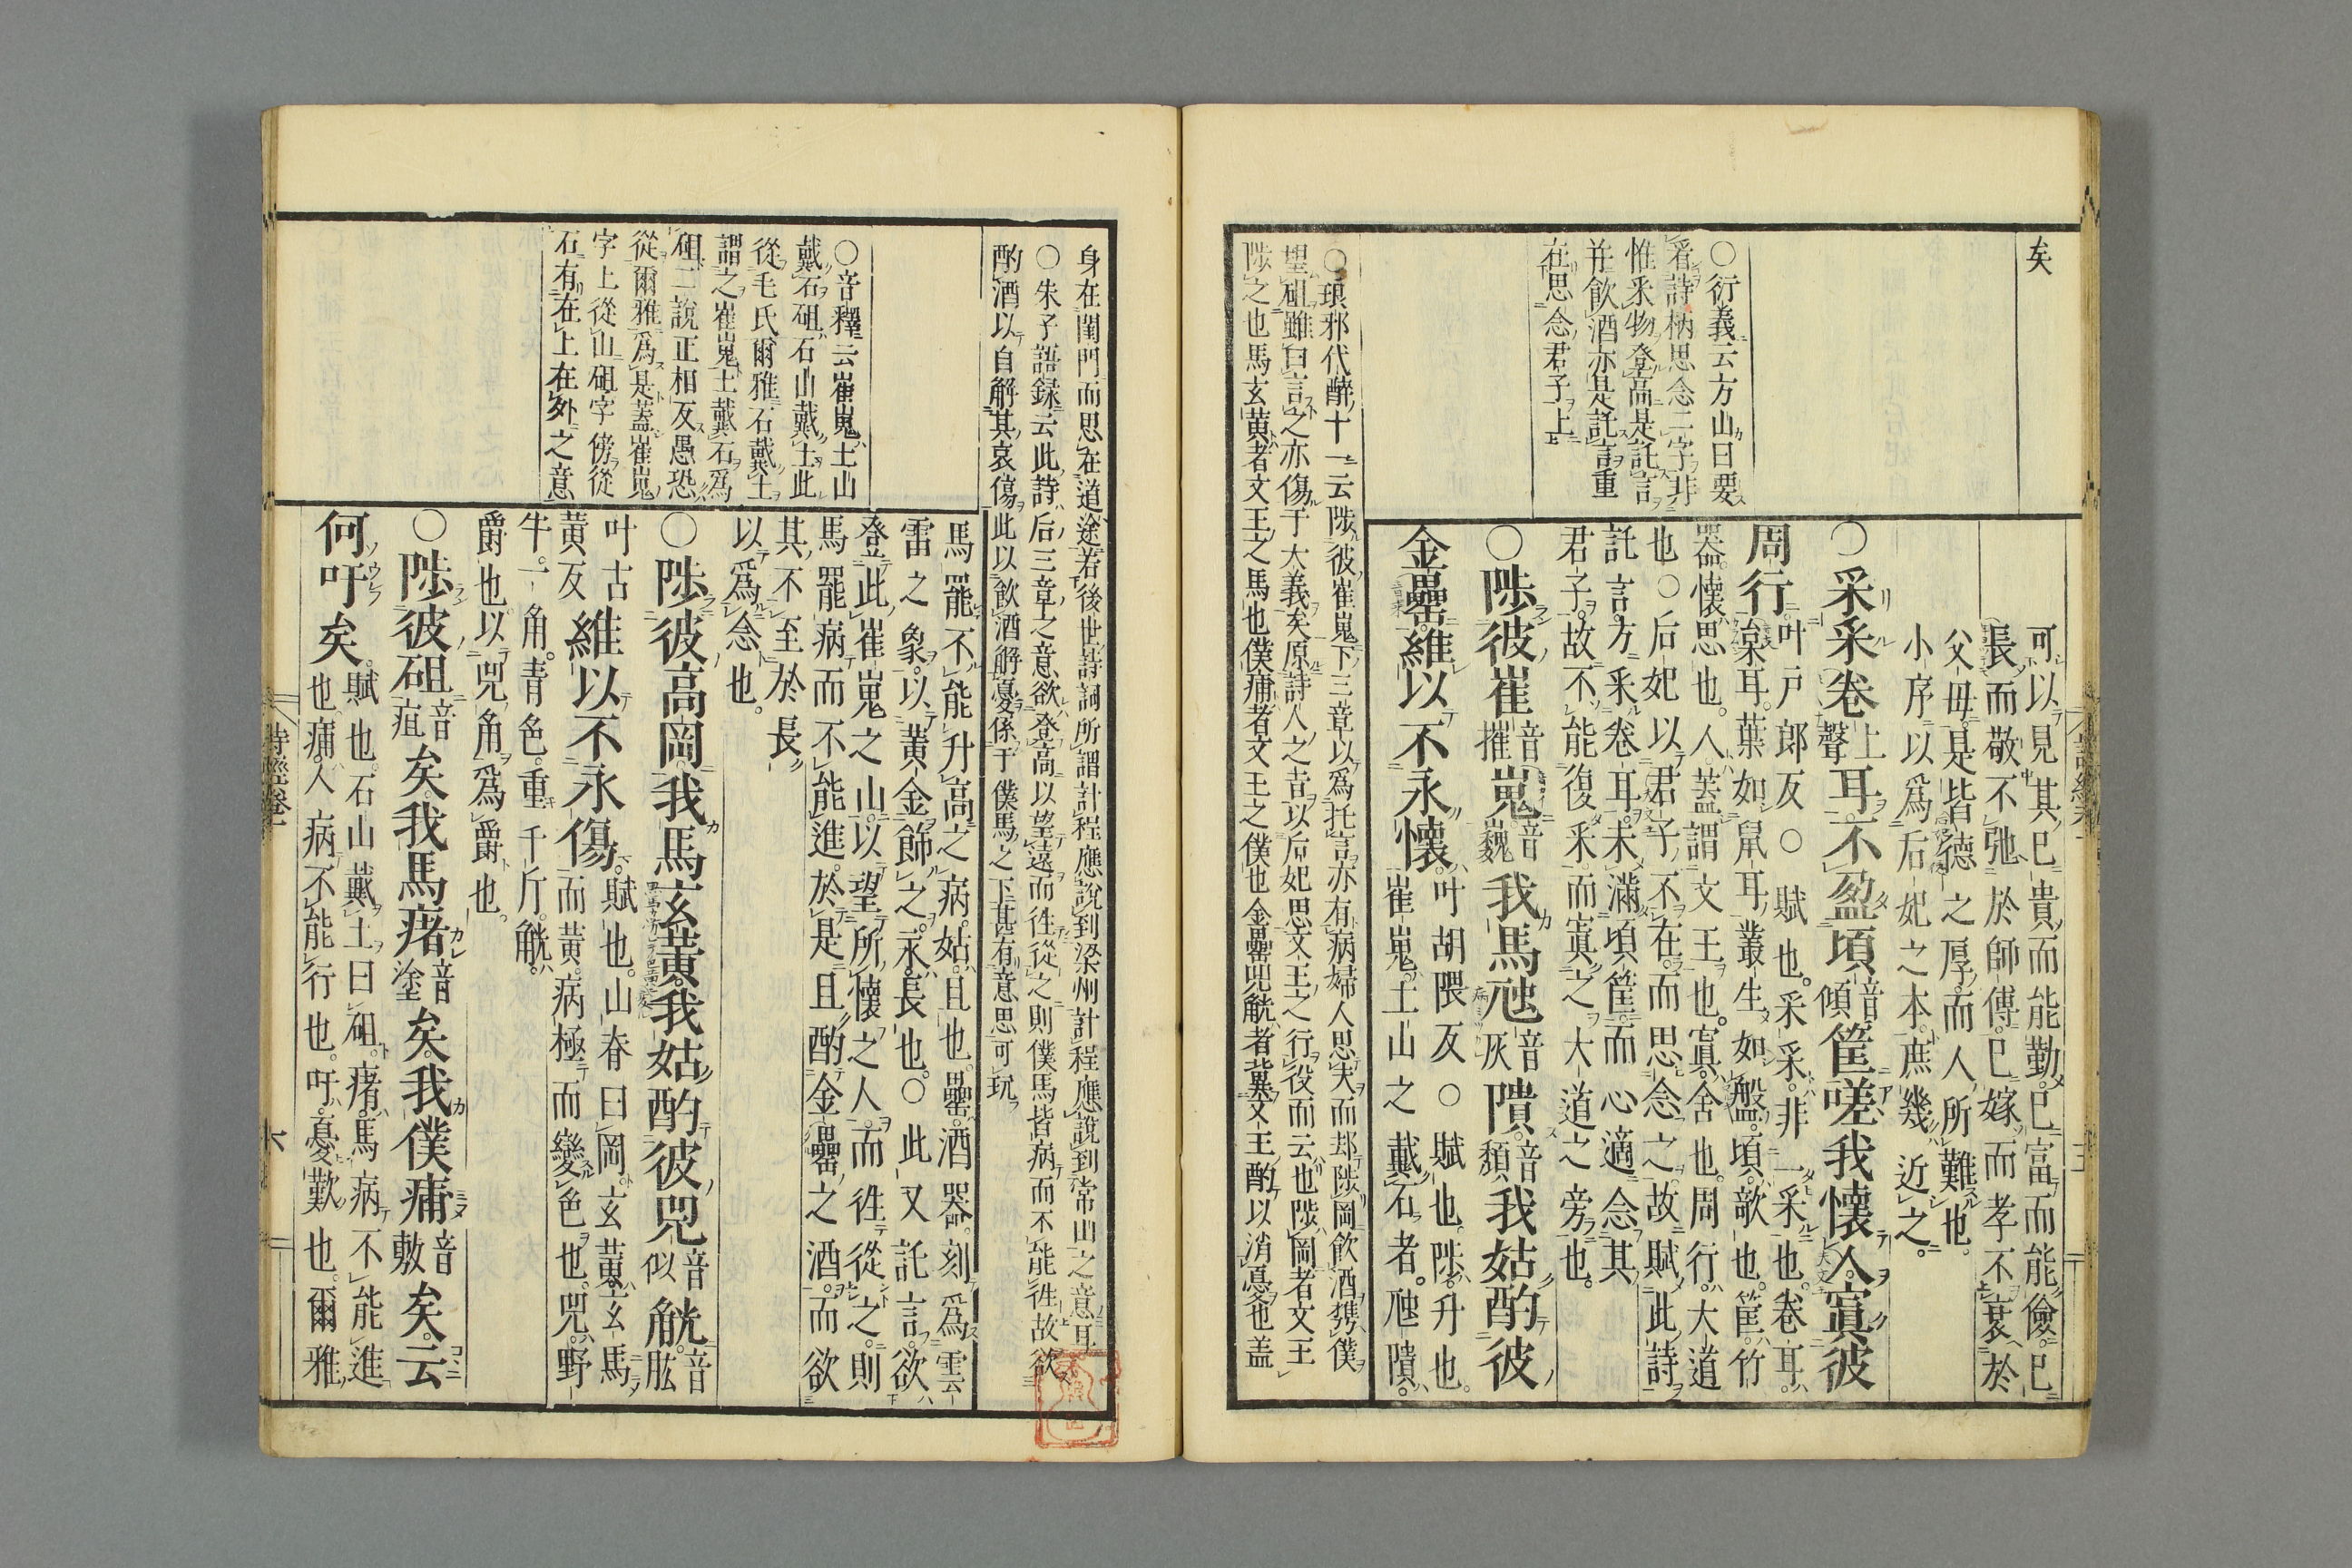 矣
○衍義云方山曰要
看詩柄思念二字非
惟釆物登高是託言
并飲酒亦是託言重
在思念君子上
可以見其已貴而能勤已富而能儉已
長而敬不弛於師傅已嫁而孝不衰於
父母是皆德之厚而人所難也
小序以爲后妃之本庶幾近之
○采采卷上聲耳不盈頃音傾筐嗟我懷人寘彼
周行叶戸郎反○賦也采采非一采也卷耳
枲耳葉如鼠耳叢生如盤頃欹也筐竹
器懷思也人蓋謂文王也寘舍也周行大道
也○后妃以君子不在而思念之故賦此詩
託言方采卷耳未滿頃筐而心適念其
君子故不能復采而寘之大道之旁也
○陟彼崔音摧嵬音巍我馬虺音灰隤音頹我姑酌彼
金罍維以不永懷叶胡隈反○賦也陟升也
崔嵬土山之戴石者虺隤
○琅邪代醉十一云陟彼崔嵬下三章以爲托言亦有病婦人思夫而却陟岡飲酒携僕
望砠雖曰言之亦傷于大義矣原詩人之旨以后妃思文王之行役而云也陟岡者文王
陟之也馬玄黄者文王之馬也僕痡者文王之僕也金罍兕觥者冀文王酌以消憂也蓋
身在閨門而思在道途若後世詩詞所謂計程應說到梁州計程應說到常山之意耳
○朱子語録云此詩后三章之意欲登高以望遠而往從之則僕馬皆病而不能徃故欲
酌酒以自解其哀傷此以飲酒解憂係于僕馬之下甚有意思可玩
○音釋云崔嵬土山
戴石砠石山戴土此
從毛氏爾雅石戴土
謂之崔嵬土戴石爲
砠二說正相反愚恐
從爾雅爲是蓋崔嵬
字上從山砠字傍從
石有在上在外之意
馬罷不能升高之病姑且也罍酒器刻爲雲
雷之象以黃金飾之永長也○此又託言欲
登此崔嵬之山以望所懷之人而往從之則
馬罷病而不能進於是且酌金罍之酒而欲
其不至於長
以爲念也
○陟彼高岡我馬玄黃我姑酌彼兕音似觥音肱
叶古黃反維以不永傷賦也山脊曰岡玄黃玄馬
而黃病極而變色也兕野
牛一角青色重千斤觥
爵也以兕角爲爵也
○陟彼砠音疽矣我馬瘏音塗矣我僕痡音敷矣云
何吁矣賦也石山戴土曰砠瘏馬病不能進
也痡人病不能行也吁憂歎也爾雅
詩經卷一
六